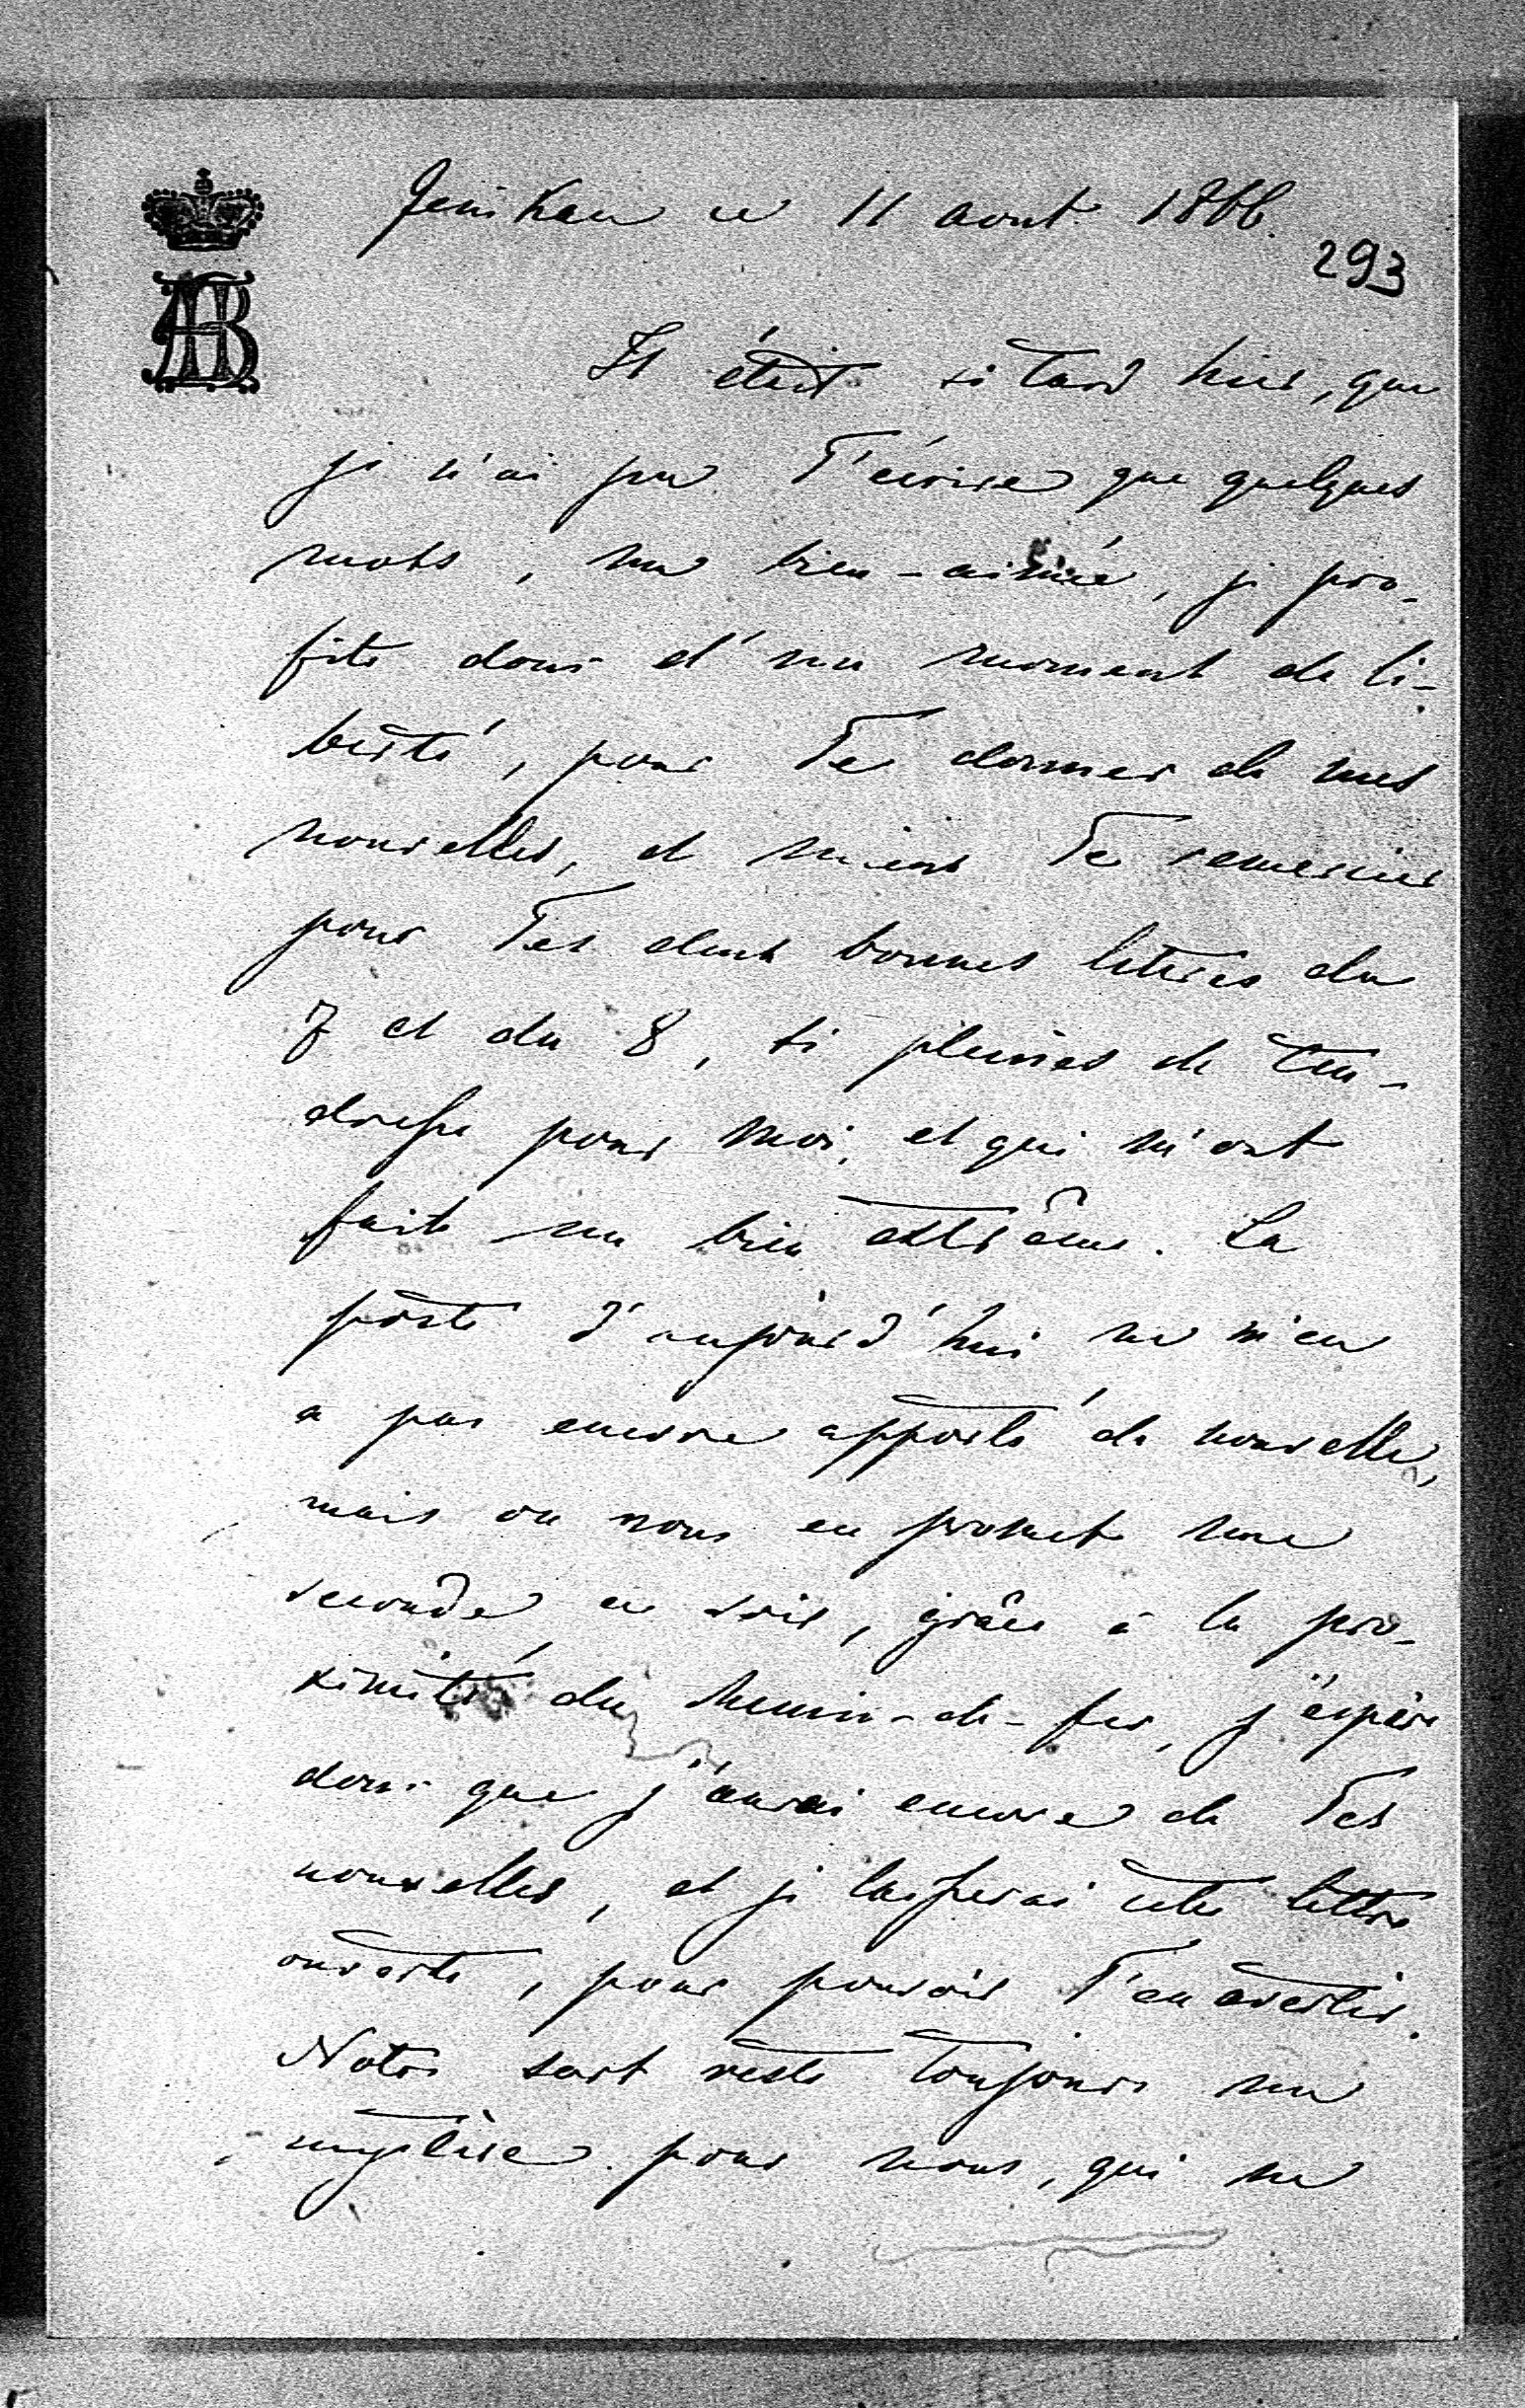 Jenikau ce 11 aout 1866.
293
Il était si tard hier, que
je n'ai pu T'écrire que quelques
mots, ma bien-aimée, je pro-
fite donc d'un moment de li-
berté, pour Te donner de mes
nouvelles, et mieux Te remercier
pour Tes deux bonnes lettres du
7 et du 8, si pleines de ten-
dresse pour moi, et qui m'ont
fait un bien extrême. La
poste d'aujourd'hui ne m'en
a pas encore apporté de nouvelle,
mais on nous en promet une
seconde ce soir, grâce à la pro-
ximité du chemin-de-fer, j'espère
donc que j'aurai encore de Tes
nouvelles, et je laisserai cette lettre
ouverte, pour pouvoir T'en avertir.
Notre sort reste toujours un
mystère pour nous, qui ne